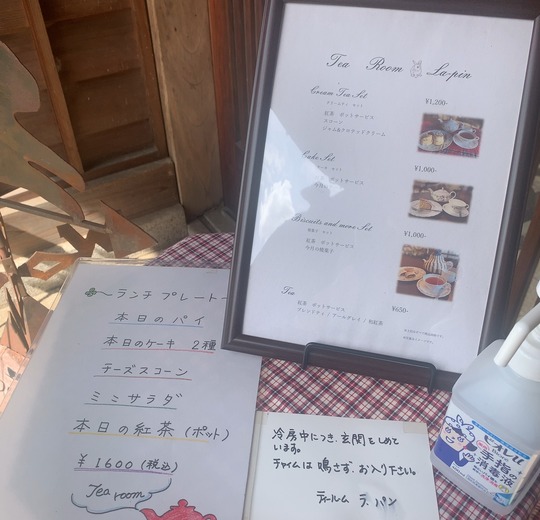 Tea Room La-pin
Cream Tea Set
クリームティ セット
¥1,200-
紅茶 ポットサービス
スコーン
ジャム&クロテッドクリーム
Cake Set
¥1,000-
ポットサービス
Biscuits and more Set
¥1,000-
紅茶 ポットサービス
Tea
¥650-
紅茶 ポットサービス
ブレンドティ / アールグレイ / 和紅茶
~ランチ プレート~
本日のパイ
本日のケーキ 2種
チーズスコーン
ミニサラダ
本日の紅茶(ポット)
¥1600(税込)
Tea room
冷房中につき、玄関をしめて
います。
チャイムは鳴さず、お入り下さい。
ティルーム ラ.パン
ビオレu
手指の
消毒液